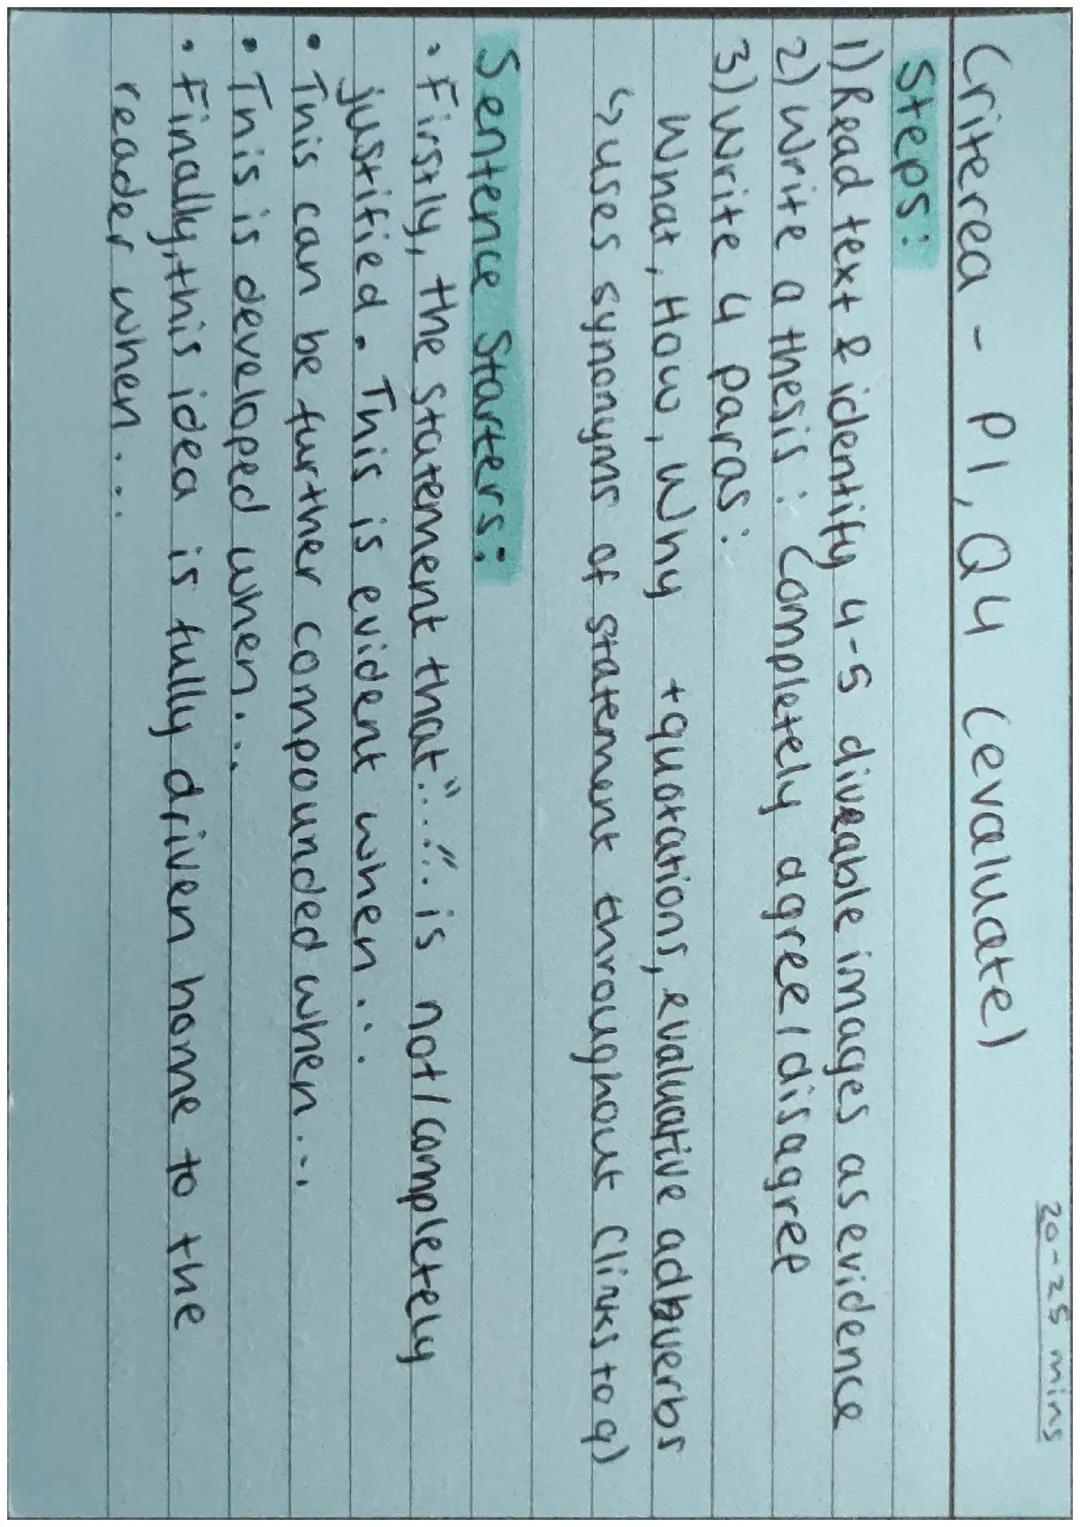 20-25 mins
Criterea - P1, Q4 (evaluate)
Steps:
1) Read text & identify 4-5 diveable images as evidence
2) Write a thesis: Completely agree/disagree
3) Write 4 paras:
What, How, Why + quotations, evaluative adverbs
↳ uses synonyms of statement throughout (links to q)
Sentence Starters:
• Firstly, the statement that "..." is not/completely
justified. This is evident when...
• This can be further compounded when...
• This is developed when...
• Finally, this idea is fully driven home to the
reader when...